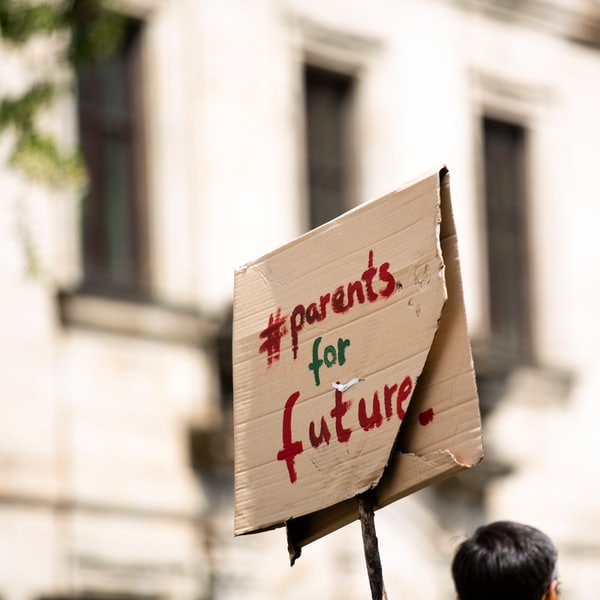 #parents
for
future.